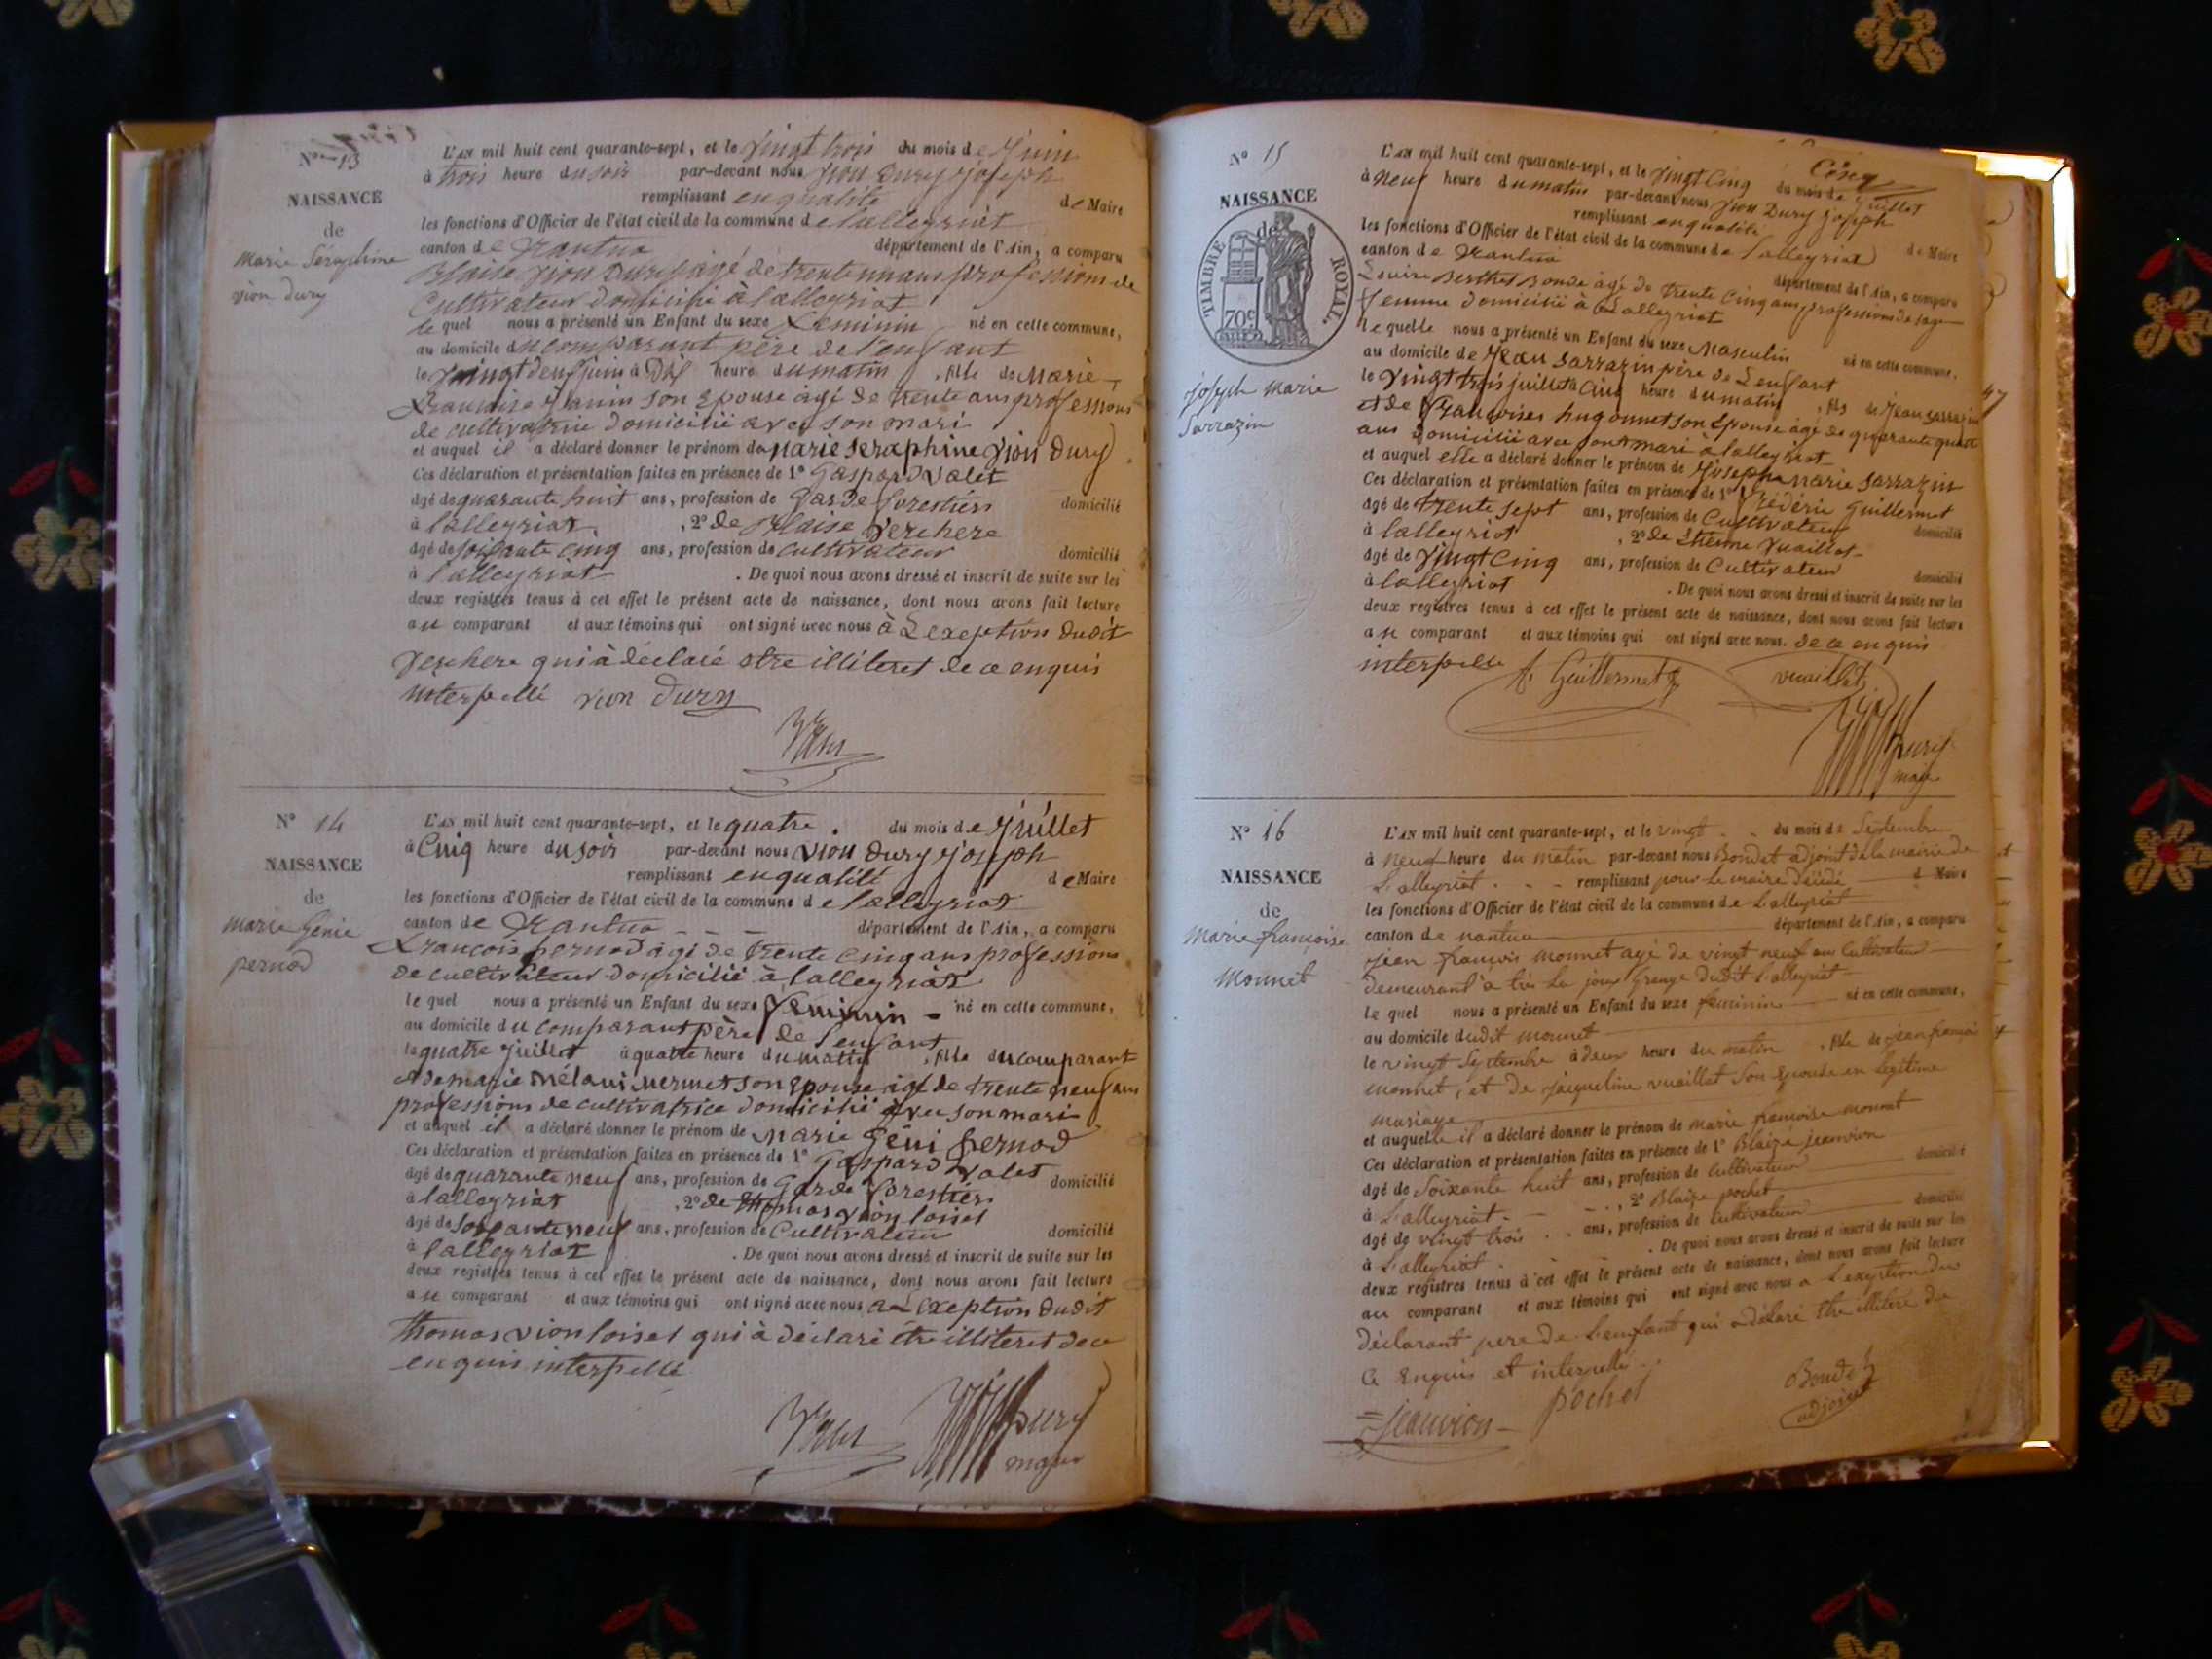 N° 13
NAISSANCE
de
Marie Séraphine
vion dury
L'AN mil huit cent quarante-sept, et le vingt trois du mois de Juin
à trois heure du soir par-devant nous vion Dury joseph
remplissant en qualité de Maire
les fonctions d'Officier de l'état civil de la commune de lalleyriat
canton de Nantua département de l'Ain, a comparu
Blaise vion Dury agé de trente un ans professions de
Cultivateur domicilié à lalleyriat
le quel nous a présenté un Enfant du sexe Féminin né en cette commune,
au domicile du comparant père de l'enfant
le vingt deux juin à Dix heure du matin , fille de Marie
Francoise son Epouse agé de trente ans professions
de cultivatrice domicilié avec son mari
et auquel il a déclaré donner le prénom de Marie Seraphine Vion Dury
Ces déclaration et présentation faites en présence de 1° Gaspard Valet
âgé de quarante huit ans, profession de Garde forestiers domicilié
à lalleyriat , 2° de Blaise Verchere
âgé de soixante cinq ans, profession de cultivateur domicilié
à lalleyriat . De quoi nous avons dressé et inscrit de suite sur les
deux registres tenus à cet effet le présent acte de naissance, dont nous avons fait lecture
au comparant et aux témoins qui ont signé avec nous à L'exeption dudit
Verchere qui à déclaré etre illiteret de ce enquis
interpellé vion Dury
N° 14
NAISSANCE
de
marie Génie
pernod
L'AN mil huit cent quarante-sept, et le quatre . du mois de Juillet
à Cinq heure du soir par-devant nous vion Dury joseph
remplissant en qualité de Maire
les fonctions d'Officier de l'état civil de la commune de lalleyriat
canton de Nantua département de l'Ain, a comparu
Francois pernod agé de trente cinq ans professions
de cultivateur domicilié à lalleyriat
le quel nous a présenté un Enfant du sexe Feminin né en cette commune,
au domicile du comparant père de l'enfant
le quatre juillet à quatre heure du matin , fille du comparant
et de marie Mélani mermet son Epouse agé de trente neuf ans
professions de cultivatrice domicilié avec son mari
et auquel il a déclaré donner le prénom de Marie Géni pernod
Ces déclaration et présentation faites en présence de 1° Gaspard Valet
âgé de quarante neuf ans, profession de Garde forestiers domicilié
à lalleyriat , 2° de thomas vion loisel
âgé de soixante neuf ans, profession de Cultivateur domicilié
à lalleyriat . De quoi nous avons dressé et inscrit de suite sur les
deux registres tenus à cet effet le présent acte de naissance, dont nous avons fait lecture
au comparant et aux témoins qui ont signé avec nous a L'exeption dudit
thomas vion loisel qui à déclaré être illiteret de ce
enquis interpellé
Dury
maire
Cinq
N° 15
NAISSANCE
de
TIMBRE ROYAL.
70c
joseph Marie
Sarrazin
L'AN mil huit cent quarante-sept, et le vingt Cinq du mois de juillet
à neuf heure du matin par-devant nous vion Dury joseph
remplissant en qualité de Maire
les fonctions d'Officier de l'état civil de la commune de lalleyriat
canton de Nantua département de l'Ain, a comparu
Louise Berthet Bonde agé de trente Cinq ans professions de sage
femme domicilié à Lalleyriat
le quelle nous a présenté un Enfant du sexe Masculin né en cette commune,
au domicile de Jean Sarrazin père de l'enfant
le vingt trois juillet à cinq heure du matin , fils de Jean Sarrazin
et de Francoises hugonnet son Epouse agé de quarante quatre
ans domicilié avec son mari à lalleyriat
et auquel elle a déclaré donner le prénom de Joseph Marie Sarrazin
Ces déclaration et présentation faites en présence de 1° Frédéric Guillermet
âgé de trente sept ans, profession de Cultivateur domicilié
à lalleyriat , 2° de Etienne Vuaillat
âgé de vingt Cinq ans, profession de Cultivateur domicilié
à lalleyriat . De quoi nous avons dressé et inscrit de suite sur les
deux registres tenus à cet effet le présent acte de naissance, dont nous avons fait lecture
au comparant et aux témoins qui ont signé avec nous. de ce enquis
interpelle f. Guillermet vuaillat
Dury
maire
N° 16
NAISSANCE
de
Marie françoise
Monnet
L'AN mil huit cent quarante-sept, et le vingt du mois de Septembre
à neuf heure du matin par-devant nous Bondet adjoint de la mairie de
L'alleyriat remplissant pour le maire décédé d Maire
les fonctions d'Officier de l'état civil de la commune de L'alleyriat
canton de nantua département de l'Ain, a comparu
jean françois monnet agé de vingt neuf ans Cultivateur
demeurant Grange dudit L'alleyriat
le quel nous a présenté un Enfant du sexe feminin né en cette commune,
au domicile dudit monnet
le vingt Septembre à deux heure du matin , fille de jean françois
monnet, et de jacqueline vuaillat Son Epouse en légitime
mariage
et auquelle il a déclaré donner le prénom de marie françoise monnet
Ces déclaration et présentation faites en présence de 1° Blaize jeanvion
âgé de Soixante huit ans, profession de Cultivateur domicilié
à L'alleyriat , 2° Blaize pochet
âgé de vingt trois ans, profession de cultivateur domicilié
à L'alleyriat . De quoi nous avons dressé et inscrit de suite sur les
deux registres tenus à cet effet le présent acte de naissance, dont nous avons fait lecture
au comparant et aux témoins qui ont signé avec nous a L'exeption du
déclarant pere de L'enfant qui a déclaré être illitere de
ce Enquis et interpellé
Jeanvion pochet Bondet
adjoint